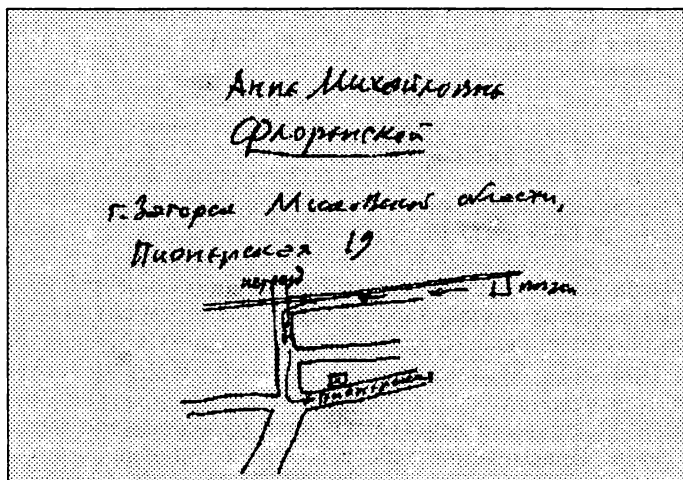 Анне Михайловне
Флоренской
г. Загорск Московской области,
Пионерская 19
переезд
вокзал
Пионерская